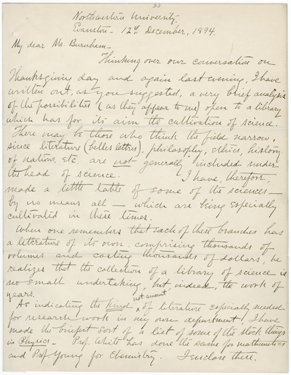 Northwestern University,
Evanston. 12th December, 1894.
My dear Mr. Burnham:
Thinking over our conversation on
Thanksgiving day and again last evening, I have
written out, as you suggested, a very brief analysis
of the possibilities (as they appear to me) open to a library
which has for its aim the cultivation of science.
There may be those who think the field narrow,
since literature (belles lettres), philosophy, ethics, history
of nations, etc. are not generally included under
the head of science. I have, therefore
made a little table of some of the sciences—
by no means all — which are being especially
cultivated in these times.
When one remembers that each of these branches has
a literature of its own, comprising thousands of
volumes and costing thousands of dollars, he
realizes that the collection of a library of science is
no small undertaking, but, indeed, the work of
years.
As indicating the kind, not amount, of literature especially needed
for research work in my own department, I have
made the briefest sort of a list of some of the stock things
in Physics. Prof. White has done the same for mathematics
and Prof Young for Chemistry. I enclose these.